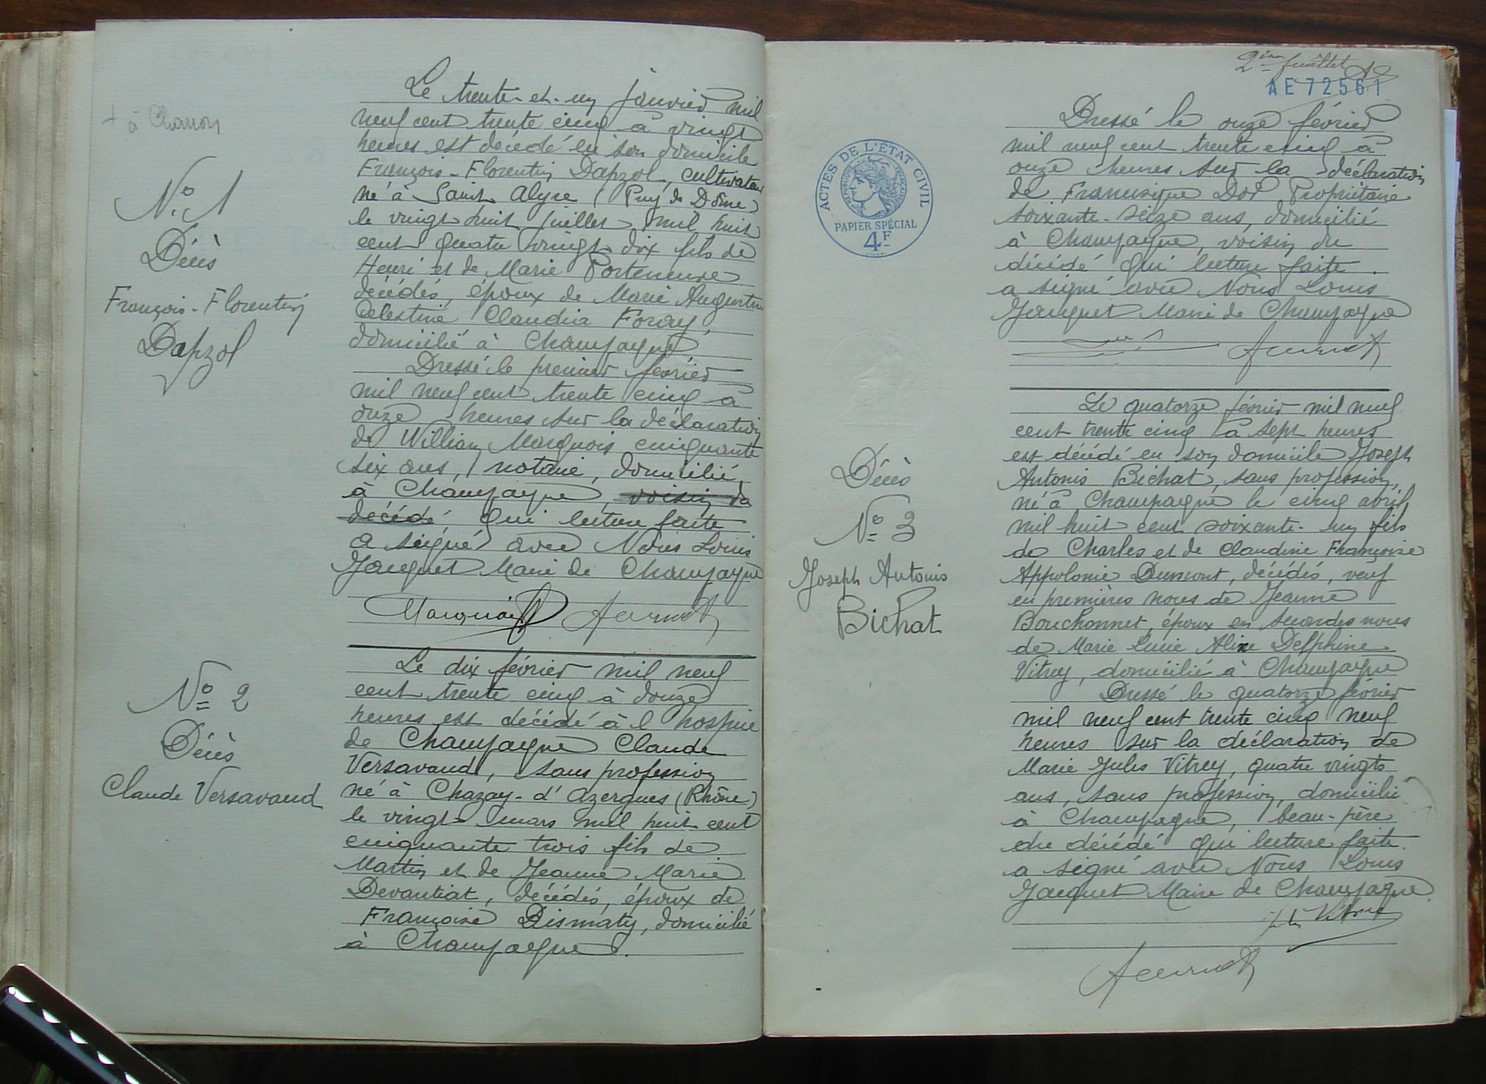 + à Charron
N° 1
Décès
François-Florentin
Dapzol
Le trente-et-un janvier mil
neuf cent trente cinq à vingt
heures est décédé en son domicile
François-Florentin Dapzol, cultivateur
né à Saint Alyre (Puy de Dôme)
le vingt huit juillet mil huit
cent quatre vingt dix fils de
Henri et de Marie
décédés, époux de Marie Augustine
Célestine Claudia Foray,
domicilié à Champagne
Dressé le premier février
mil neuf cent trente cinq à
onze heures sur la déclaration
de William Marquois cinquante
six ans, notaire, domicilié
à Champagne voisin du
décédé qui lecture faite
a signé avec Nous Louis
Jacquet Maire de Champagne
N° 2
Décès
Claude Versavaud
Le dix février mil neuf
cent trente cinq à douze
heures est décédé à l'hospice
de Champagne Claude
Versavaud, sans profession
né à Chazay-d'Azergues (Rhône)
le vingt mars mil huit cent
cinquante trois fils de
Martin et de Jeanne Marie
Devantiat, décédés, époux de
Françoise Dismaty, domicilié
à Champagne.
2ème feuillet
AE 72561
ACTES DE L'ÉTAT CIVIL
PAPIER SPÉCIAL
4F
Dressé le onze février
mil neuf cent trente cinq à
onze heures sur la déclaration
de Francisque Dor Propriétaire
soixante-seize ans, domicilié
à Champagne, voisin du
décédé qui lecture faite
a signé avec Nous Louis
Jacquet Maire de Champagne
Décès
N° 3
Joseph Antonis
Bichat
Le quatorze février mil neuf
cent trente cinq à sept heures
est décédé en son domicile Joseph
Antonis Bichat, sans profession,
né à Champagne le cinq avril
mil huit cent soixante-un fils
de Charles et de Claudine Françoise
Appolonie Dumont, décédés, veuf
en premières noces de Jeanne
Bouchonnet, époux en secondes noces
de Marie Lucie Alixe Delphine
Vitrey, domicilié à Champagne
Dressé le quatorze février
mil neuf cent trente cinq neuf
heures sur la déclaration de
Marie Jules Vitrey, quatre vingts
ans, sans profession, domicilié
à Champagne, beau-père
du décédé qui lecture faite
a signé avec Nous Louis
Jacquet Maire de Champagne.